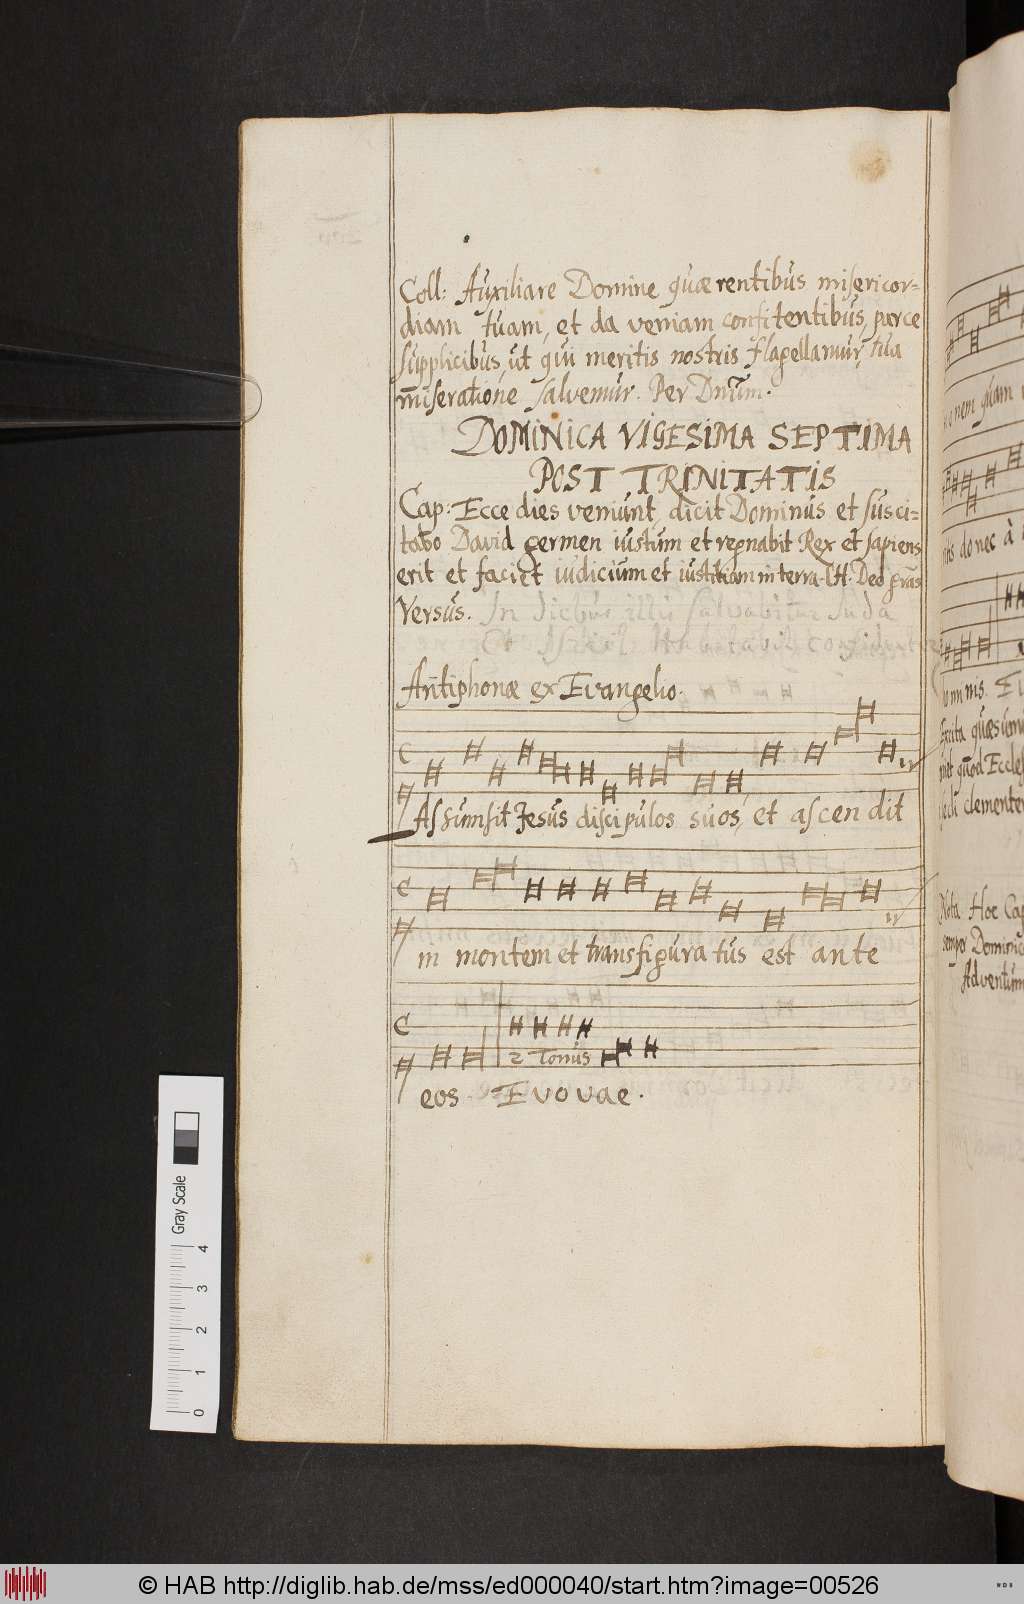 Coll: Auxiliare Domine quærentibus misericor=
diam tuam, et da veniam confitentibus, parce
supplicibus, ut qui meritis nostris flagellamur, tua
miseratione salvemur. Per Dnum.
DOMINICA VIGESIMA SEPTIMA
POST TRINITATIS
Cap: Ecce dies veniunt, dicit Dominus et susci=
tabo David germen iustum et regnabit Rex et sapiens
erit et faciet iudicium et iustitiam in terra. Deo
Versus. In diebus illis salvabitur Juda
Et Israel habitabit confidenter
Antiphonæ ex Evangelio.
Assumsit Jesus discipulos suos, et ascendit
in montem et transfiguratus est ante
2 Tonus
eos. Evovae.
quam
donec à
Excita quæsumus
Eccle
clementer
Nota Hoc Cap
Dominic
Adventum
Gray Scale
4
3
2
1
0
© HAB http://diglib.hab.de/mss/ed000040/start.htm?image=00526